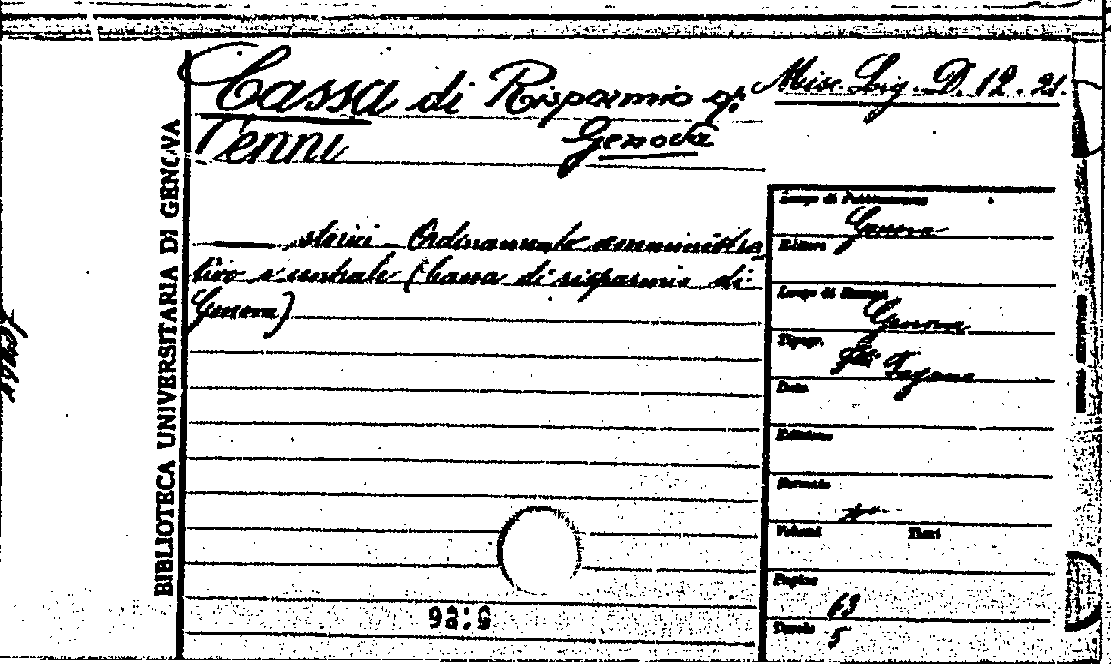 BIBLIOTECA UNIVERSITARIA DI GENOVA
Cassa di Risparmio di Misc. Lig. D. 12. 21.
Genova
Cenni
storici - Ordinamento amministra
tivo e centrale (Cassa di risparmio di
Genova)
Luogo di Pubblicazione
Genova
Editore
Luogo di Stampa
Genova
Tipogr.
Data
Edizione
Formato
Volumi Tomi
Pagine
63
Tavole 5